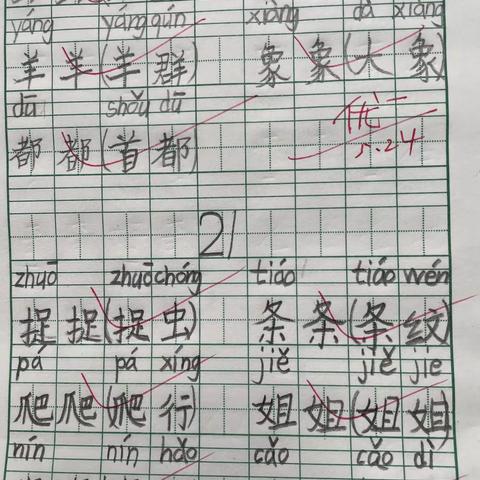 yáng yáng qún xiàng dà xiàng
羊 羊(羊 群) 象 象(大 象)
dū shǒu dū
都 都(首 都)
优
5.24
21
zhuō zhuō chóng tiáo tiáo wén
捉 捉(捉 虫) 条 条(条 纹)
pá pá xíng jiě jiě jie
爬 爬(爬 行) 姐 姐(姐 姐)
nín nín hǎo cǎo cǎo dì